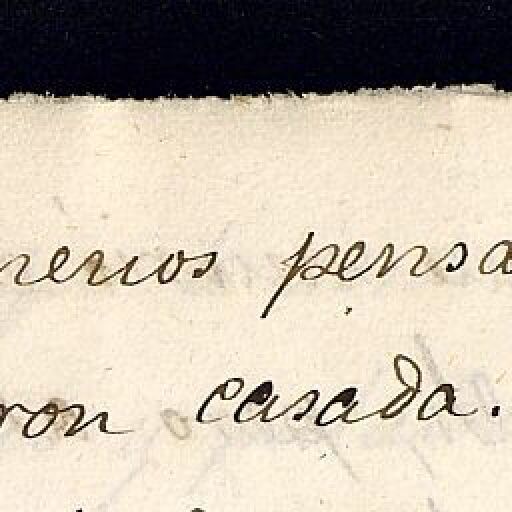 nerios pensa
ron casada.